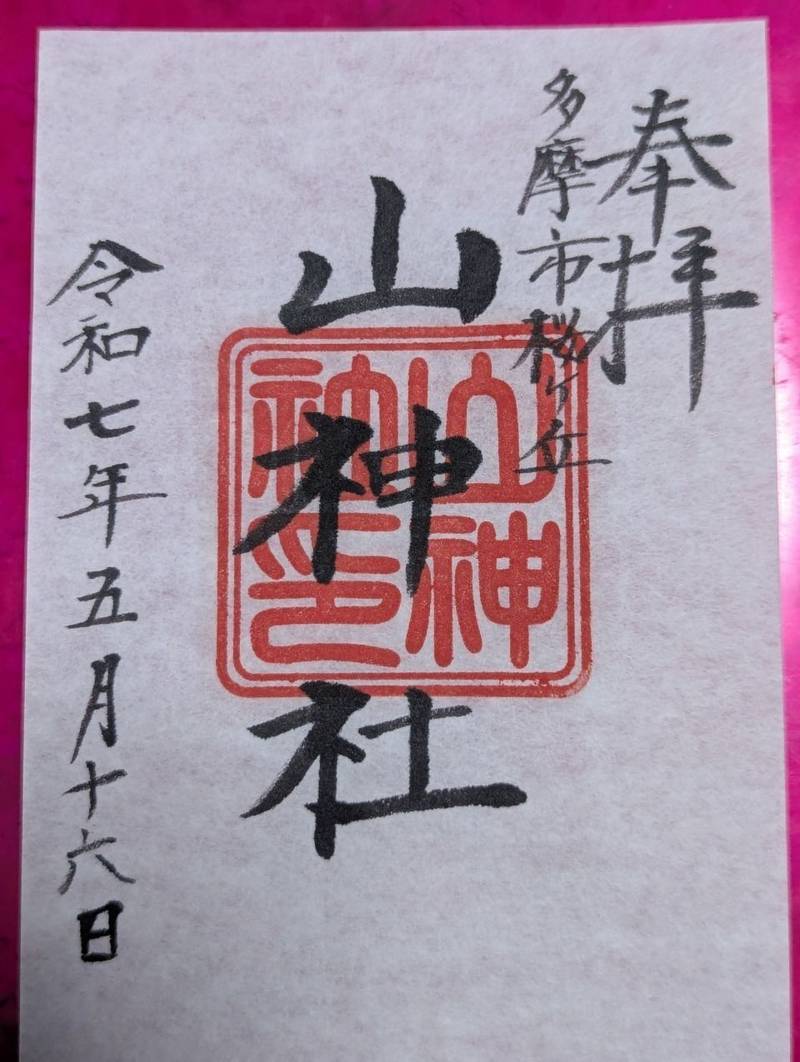 奉拝
多摩市桜ヶ丘
山神社
山神
社印
令和七年五月十六日